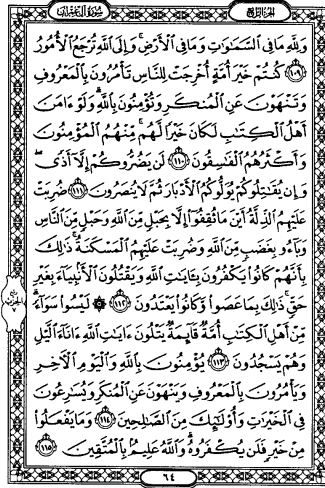 الجزء الرابع
سورة آل عمران
وَلِلَّهِ مَا فِي السَّمَاوَاتِ وَمَا فِي الْأَرْضِ وَإِلَى اللَّهِ تُرْجَعُ الْأُمُورُ
١٠٩ كُنتُمْ خَيْرَ أُمَّةٍ أُخْرِجَتْ لِلنَّاسِ تَأْمُرُونَ بِالْمَعْرُوفِ
وَتَنْهَوْنَ عَنِ الْمُنكَرِ وَتُؤْمِنُونَ بِاللَّهِ وَلَوْ ءَامَنَ
أَهْلُ الْكِتَابِ لَكَانَ خَيْرًا لَّهُم مِّنْهُمُ الْمُؤْمِنُونَ
وَأَكْثَرُهُمُ الْفَاسِقُونَ ١١٠ لَن يَضُرُّوكُمْ إِلَّا أَذًى
وَإِن يُقَاتِلُوكُمْ يُوَلُّوكُمُ الْأَدْبَارَ ثُمَّ لَا يُنصَرُونَ ١١١ ضُرِبَتْ
عَلَيْهِمُ الذِّلَّةُ أَيْنَ مَا ثُقِفُوا إِلَّا بِحَبْلٍ مِّنَ اللَّهِ وَحَبْلٍ مِّنَ النَّاسِ
وَبَاءُو بِغَضَبٍ مِّنَ اللَّهِ وَضُرِبَتْ عَلَيْهِمُ الْمَسْكَنَةُ ذَٰلِكَ
بِأَنَّهُمْ كَانُوا يَكْفُرُونَ بِـَٔايَاتِ اللَّهِ وَيَقْتُلُونَ الْأَنبِيَاءَ بِغَيْرِ
حَقٍّ ذَٰلِكَ بِمَا عَصَوا وَّكَانُوا يَعْتَدُونَ ١١٢ ۞ لَيْسُوا سَوَاءً
مِّنْ أَهْلِ الْكِتَابِ أُمَّةٌ قَائِمَةٌ يَتْلُونَ ءَايَاتِ اللَّهِ ءَانَاءَ الَّيْلِ
وَهُمْ يَسْجُدُونَ ١١٣ يُؤْمِنُونَ بِاللَّهِ وَالْيَوْمِ الْآخِرِ
وَيَأْمُرُونَ بِالْمَعْرُوفِ وَيَنْهَوْنَ عَنِ الْمُنكَرِ وَيُسَارِعُونَ
فِي الْخَيْرَاتِ وَأُولَٰئِكَ مِنَ الصَّالِحِينَ ١١٤ وَمَا يَفْعَلُوا
مِنْ خَيْرٍ فَلَن يُكْفَرُوهُ وَاللَّهُ عَلِيمٌ بِالْمُتَّقِينَ ١١٥
٦٤